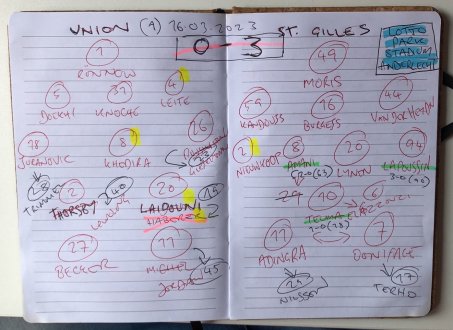 UNION (A) 16.03.2023
0 - 3
ST. GILLES
LOTTO
PARK
STADIUM
ANDERLECHT
1
RONNOW
5
DOEKHI
31
KNOCHE
4
LEITE
28
JURANOVIC
8
KHEDIRA
26
23
TRIMMEL
2
THORSBY
40
LEWELING
20
LAIDOUNI
HABERER
19
27
BECKER
11
MICHEL
JORDAN
45
49
MORIS
59
KANDOUSS
16
BURGESS
44
VAN DER HEYDEN
2
NIEUWKOOP
8
AMANI
2-0 (63)
20
LYNEN
94
LAPOUSSIN
3-0 (90)
10
TEUMA
1-0 (18)
6
EL AZZOUZI
11
ADINGRA
7
BONIFACE
29
NILSSON
17
TERHO